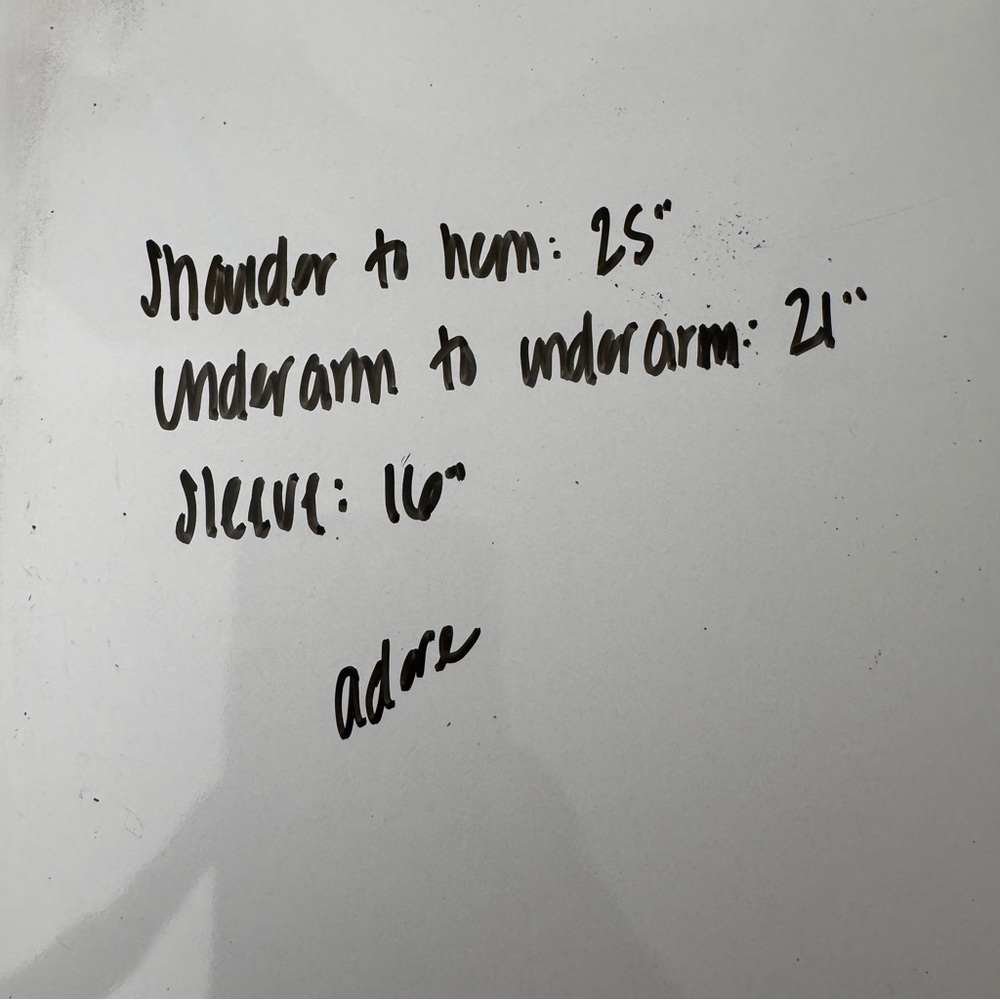 Shoulder to hem: 25"
Underarm to underarm: 21"
Sleeve: 16"
adore